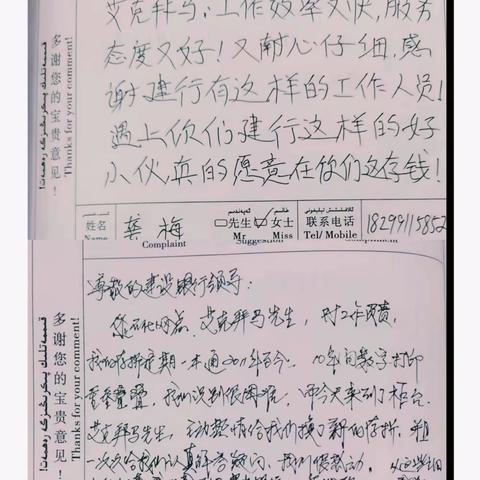 艾克拜马:工作效率又快,服务
态度又好!又耐心仔细,感
谢建行有这样的工作人员!
遇上你们建行这样的好
小伙,真的愿意在你们这存钱!
多谢您的宝贵意见!
Thanks for your comment!
姓名 龚梅 □先生 ☑女士 联系电话 18299115852
Name Mr Miss Tel/ Mobile
Complaint Suggestion
尊敬的建设银行领导:
艾克拜马先生,对工作负责,
我们存折定期一本通2011年至今。10年间数字打印
重重叠叠,我们识别很困难,而今天来到了柜台.
艾克拜马先生,主动热情给我们换了新的存折,并且
一次次给我们认真解答疑问,我们很感动,
多谢您的宝贵意见!
Thanks for your comment!